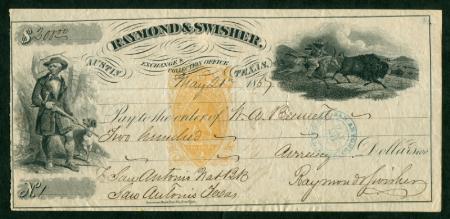 $200.00
RAYMOND & SWISHER,
EXCHANGE &
COLLECTION OFFICE
AUSTIN TEXAS,
May 21 1867
Pay to the order of W. A. Bennett
Two hundred
Currency Dollars
To San Antonio Nat Bk
San Antonio Texas
Raymond & Swisher
No. 1